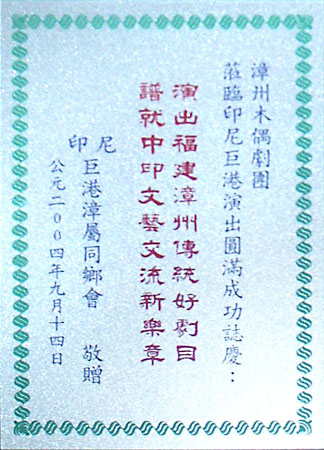 漳州木偶劇團
蒞臨印尼巨港演出圓滿成功誌慶：
演出福建漳州傳統好劇目
譜就中印文藝交流新樂章
印尼
巨港漳屬同鄉會 敬贈
公元二００四年九月十四日